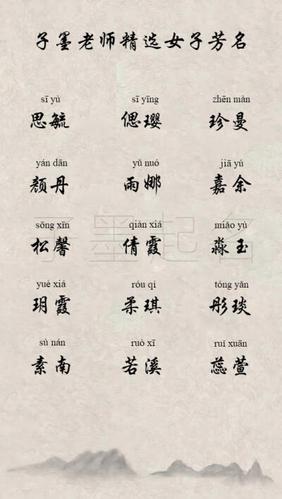 子墨老师精选女子芳名
sī yù sī yīng zhēn màn
思毓 偲璎 珍曼
yán dān yǔ nuó jiā yú
颜丹 雨娜 嘉余
sōng xīn qiàn xiá miǎo yù
松馨 倩霞 淼玉
yuè xiá róu qí tóng yǎn
玥霞 柔琪 彤琰
sù nán ruò xī ruǐ xuān
素南 若溪 蕊萱
子墨起名